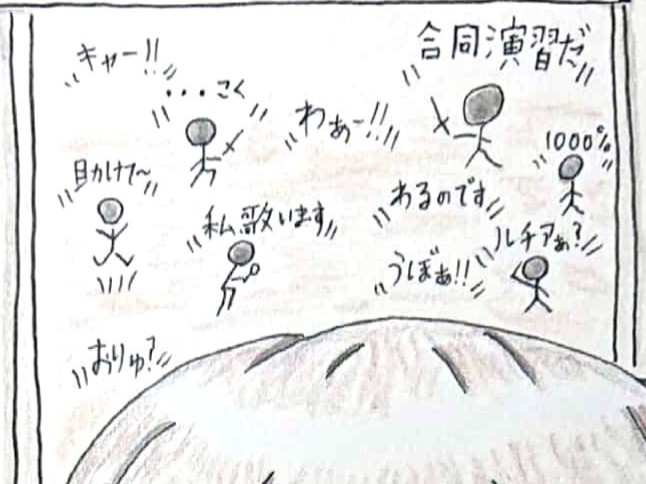 キャー!!
合同演習だ
・・・こく
わぁー!!
1000%
助けて〜
あるのです
私歌います
ルチアぁ?
うぼぁ!!
おりゅ?